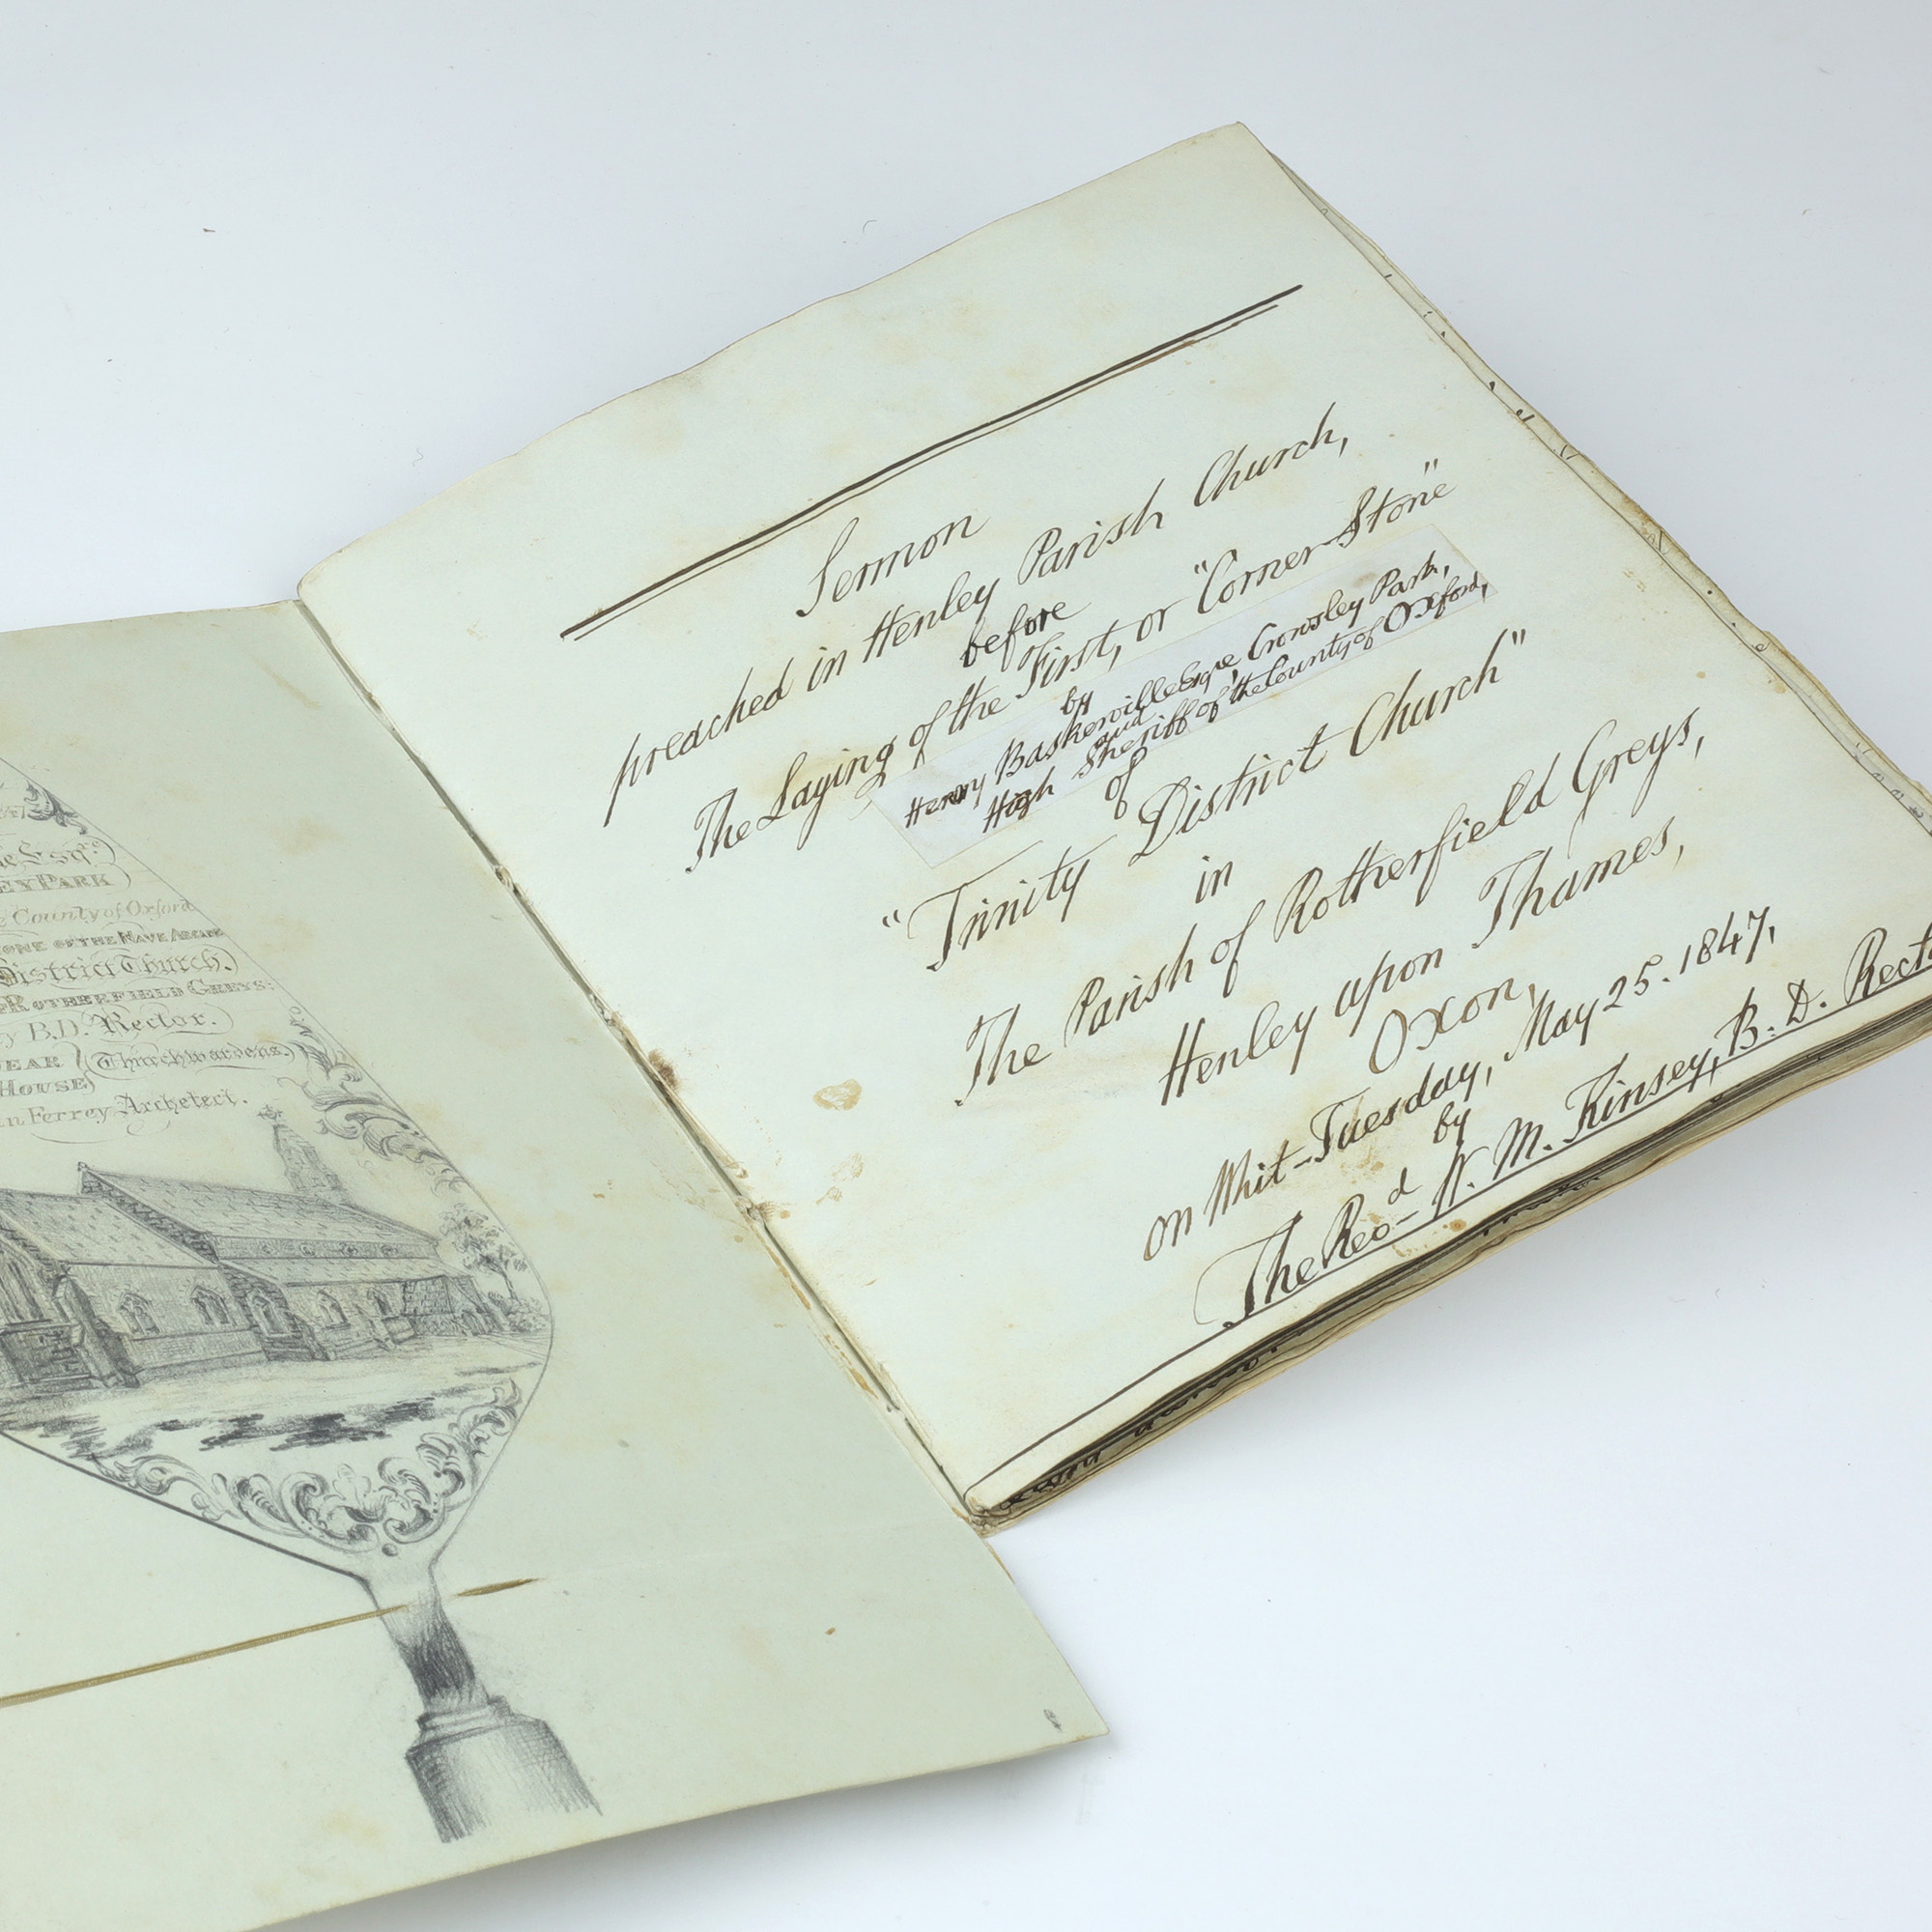 Esqre.
EY PARK
County of Oxford
ONE OF THE NAVE ARCADE
District Church.
ROTHERFIELD GREYS:
y B.D. Rector.
DEAR Churchwardens.
HOUSE
n Ferrey Archetect.
Sermon
preached in Henley Parish Church,
before
The Laying of the First, or "Corner-Stone"
by
Henry Baskerville Esqre, Crowsley Park,
and
High Sheriff of the County of Oxford,
of
"Trinity District Church"
in
The Parish of Rotherfield Greys,
Henley upon Thames,
Oxon,
on Whit-Tuesday, May 25. 1847,
by
The Revd W. M. Kinsey, B. D. Recto